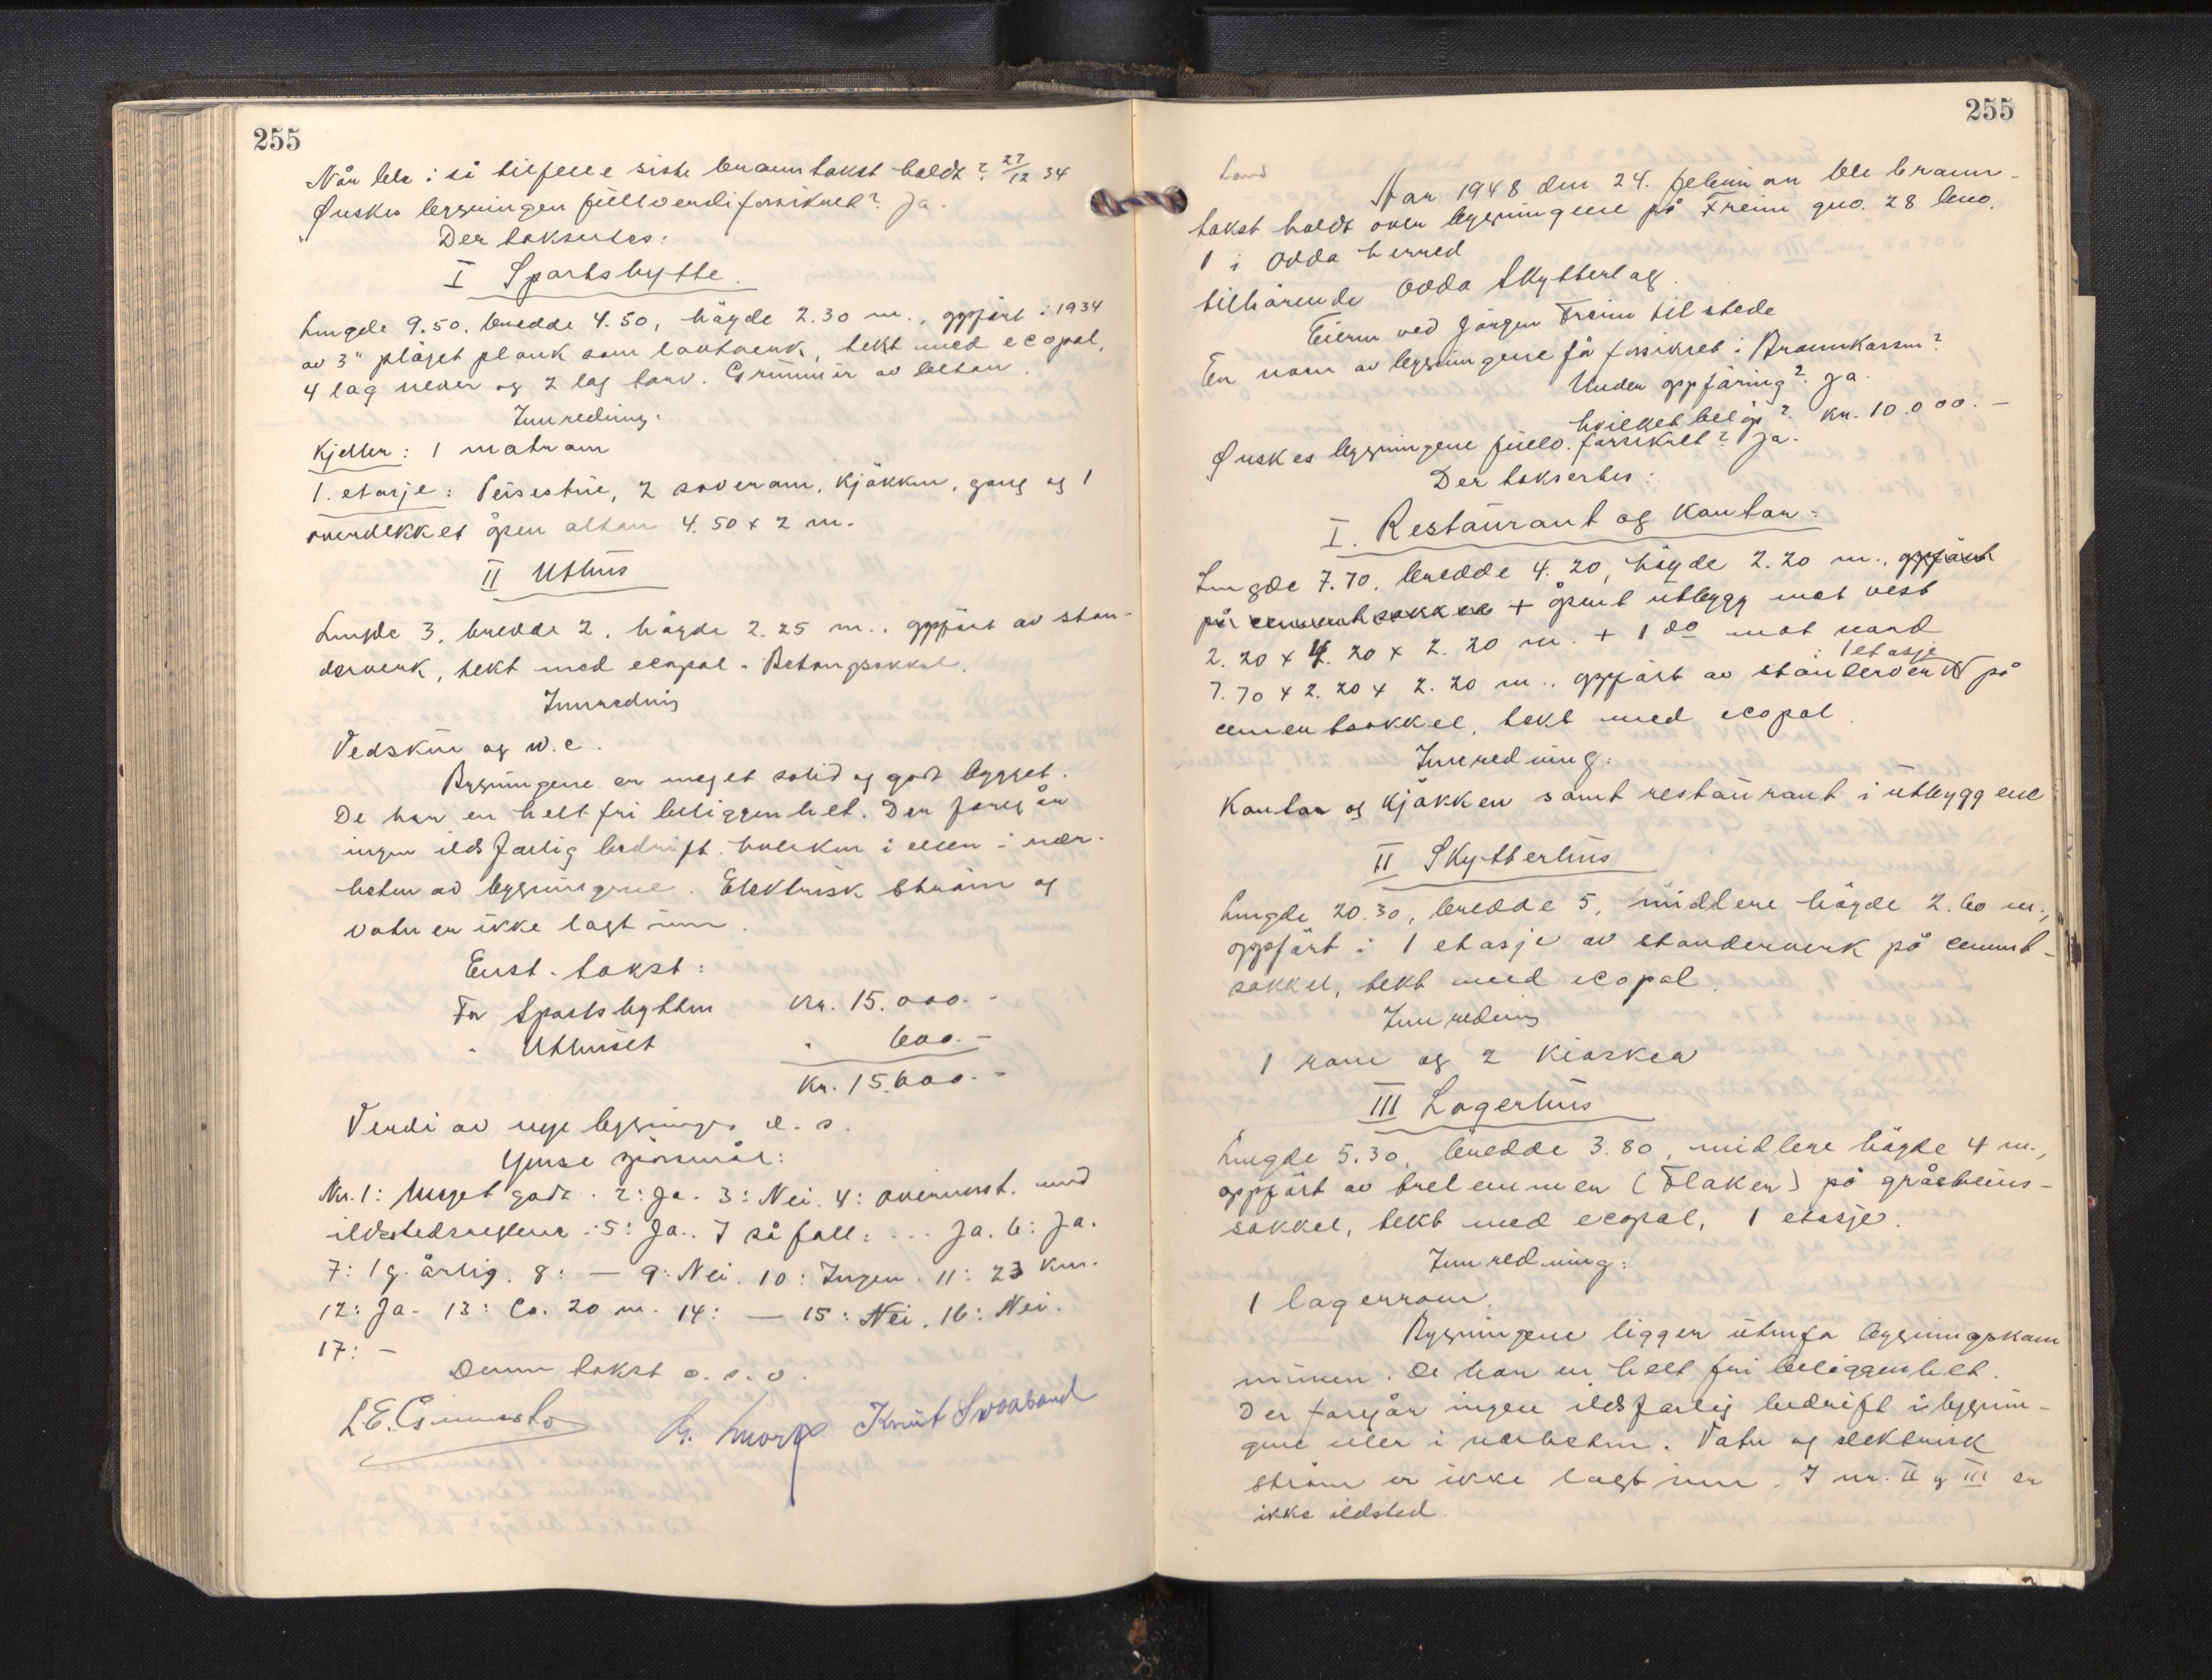 255
Når ble i så tilfelle siste branntakst holdt? 27/12 34
Ønskes bygningen fullverdiforsikret? Ja.
Der taksertes:
I Sportshytte.
Lengde 9.50, bredde 4.50, høyde 2.30 m., oppført i 1934
av 3" pløyet plank som laftverk, tekt med ecopal,
4 lag never og 2 lag torv. Grunnmur av beton.
Innredning:
Kjeller: 1 matrom
1. etasje: Peisestue, 2 soverom, kjøkken, gang og 1
overdekket åpen altan 4.50 x 2 m.
II Uthus
Lengde 3, bredde 2, høyde 2.25 m., oppført av stan-
derverk, tekt med ecopal. Betongsokkel.
Innredning
Vedskur og w.c.
Bygningene er meget solid og godt bygget.
De har en helt fri beliggenhet. Der foregår
ingen ildsfarlig bedrift hverken i eller i nær-
heten av bygningene. Elektrisk strøm og
vatn er ikke lagt inn.
Enst. takst:
For Sportshytten Kr. 15.000.-
" Uthuset " 600.-
Kr. 15.600.-
Verdi av nye bygninger d. s.
Ymse spørsmål:
Nr. 1: Meget godt. 2: Ja. 3: Nei. 4: overensst. med
ildstedsreglene. 5: Ja. I så fall: ... Ja. 6: Ja.
7: 1 g. årlig. 8: — 9: Nei. 10: Ingen. 11: 23 km.
12: Ja. 13: Ca. 20 m. 14: — 15: Nei. 16: Nei.
17: -
Denne takst o. s. v.
Knut Svaaband
255
Land
År 1948 den 24. februar ble brann-
takst holdt over bygningene på Freim gno. 28 bno.
1 i Odda herred
tilhørende Odda Skytterlag.
Eieren ved Jørgen Freim tilstede
Er noen av bygningene før forsikret i Brannkassen?
Under oppføring? Ja.
hvilket beløp? Kr. 10.000.-
Ønskes bygningene fullv. forsikret? Ja.
Der taksertes:
I. Restaurant og kontor:
Lengde 7.70, bredde 4.20, høyde 2.20 m., oppført
på cementsokkel + åpent utbygg mot vest
2.20 x 4.20 x 2.20 m. + 1 do mot nord
i 1 etasje
7.70 x 2.20 x 2.20 m., oppført av standerverk på
cementsokkel, tekt med ecopal.
Innredning:
Kontor og kjøkken samt restaurant i utbyggene
II Skytterhus
Lengde 20.30, bredde 5, midlere høyde 2.60 m.,
oppført i 1 etasje av standerverk på cement-
sokkel, tekt med ecopal.
Innredning
1 rom og 2 kiosker
III Lagerhus
Lengde 5.30, bredde 3.80, midlere høyde 4 m.,
oppført av trelemmer (Flaker) på gråsteins-
sokkel, tekt med ecopal, 1 etasje.
Innredning:
1 lagerrom.
Bygningene ligger utenfor bygningskom
munen. De har en helt fri beliggenhet.
Der foregår ingen ildsfarlig bedrift i bygnin-
gene eller i nærheten. Vatn og elektrisk
strøm er ikke lagt inn. I nr. II og III er
ikke ildsted.